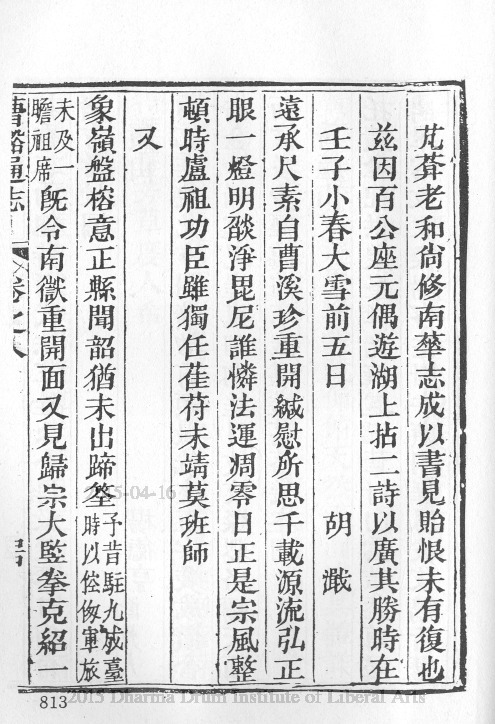 芃莽老和尙修南華志成以書見貽恨未有復也
茲因百公座元偶遊湖上拈二詩以廣其勝時在
壬子小春大雪前五日　胡濈
遠承尺素自曹溪珍重開緘慰所思千載源流弘正
眼一燈明燄淨毘尼誰憐法運凋零日正是宗風整
頓時盧祖功臣雖獨任萑苻未靖莫班師
又
象嶺盤榕意正縣聞韶猶未出蹄筌予昔駐九成臺
時以倥傯軍旅
未及一
瞻祖席旣令南獄重開面又見歸宗大監拳克紹一
曹谿通志
卷之八
813
2015-04-16
2015 Dharma Drum Institute of Liberal Arts